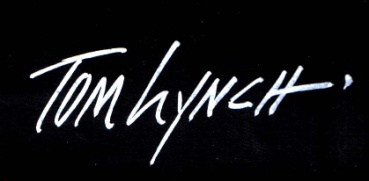 Tom Lynch.